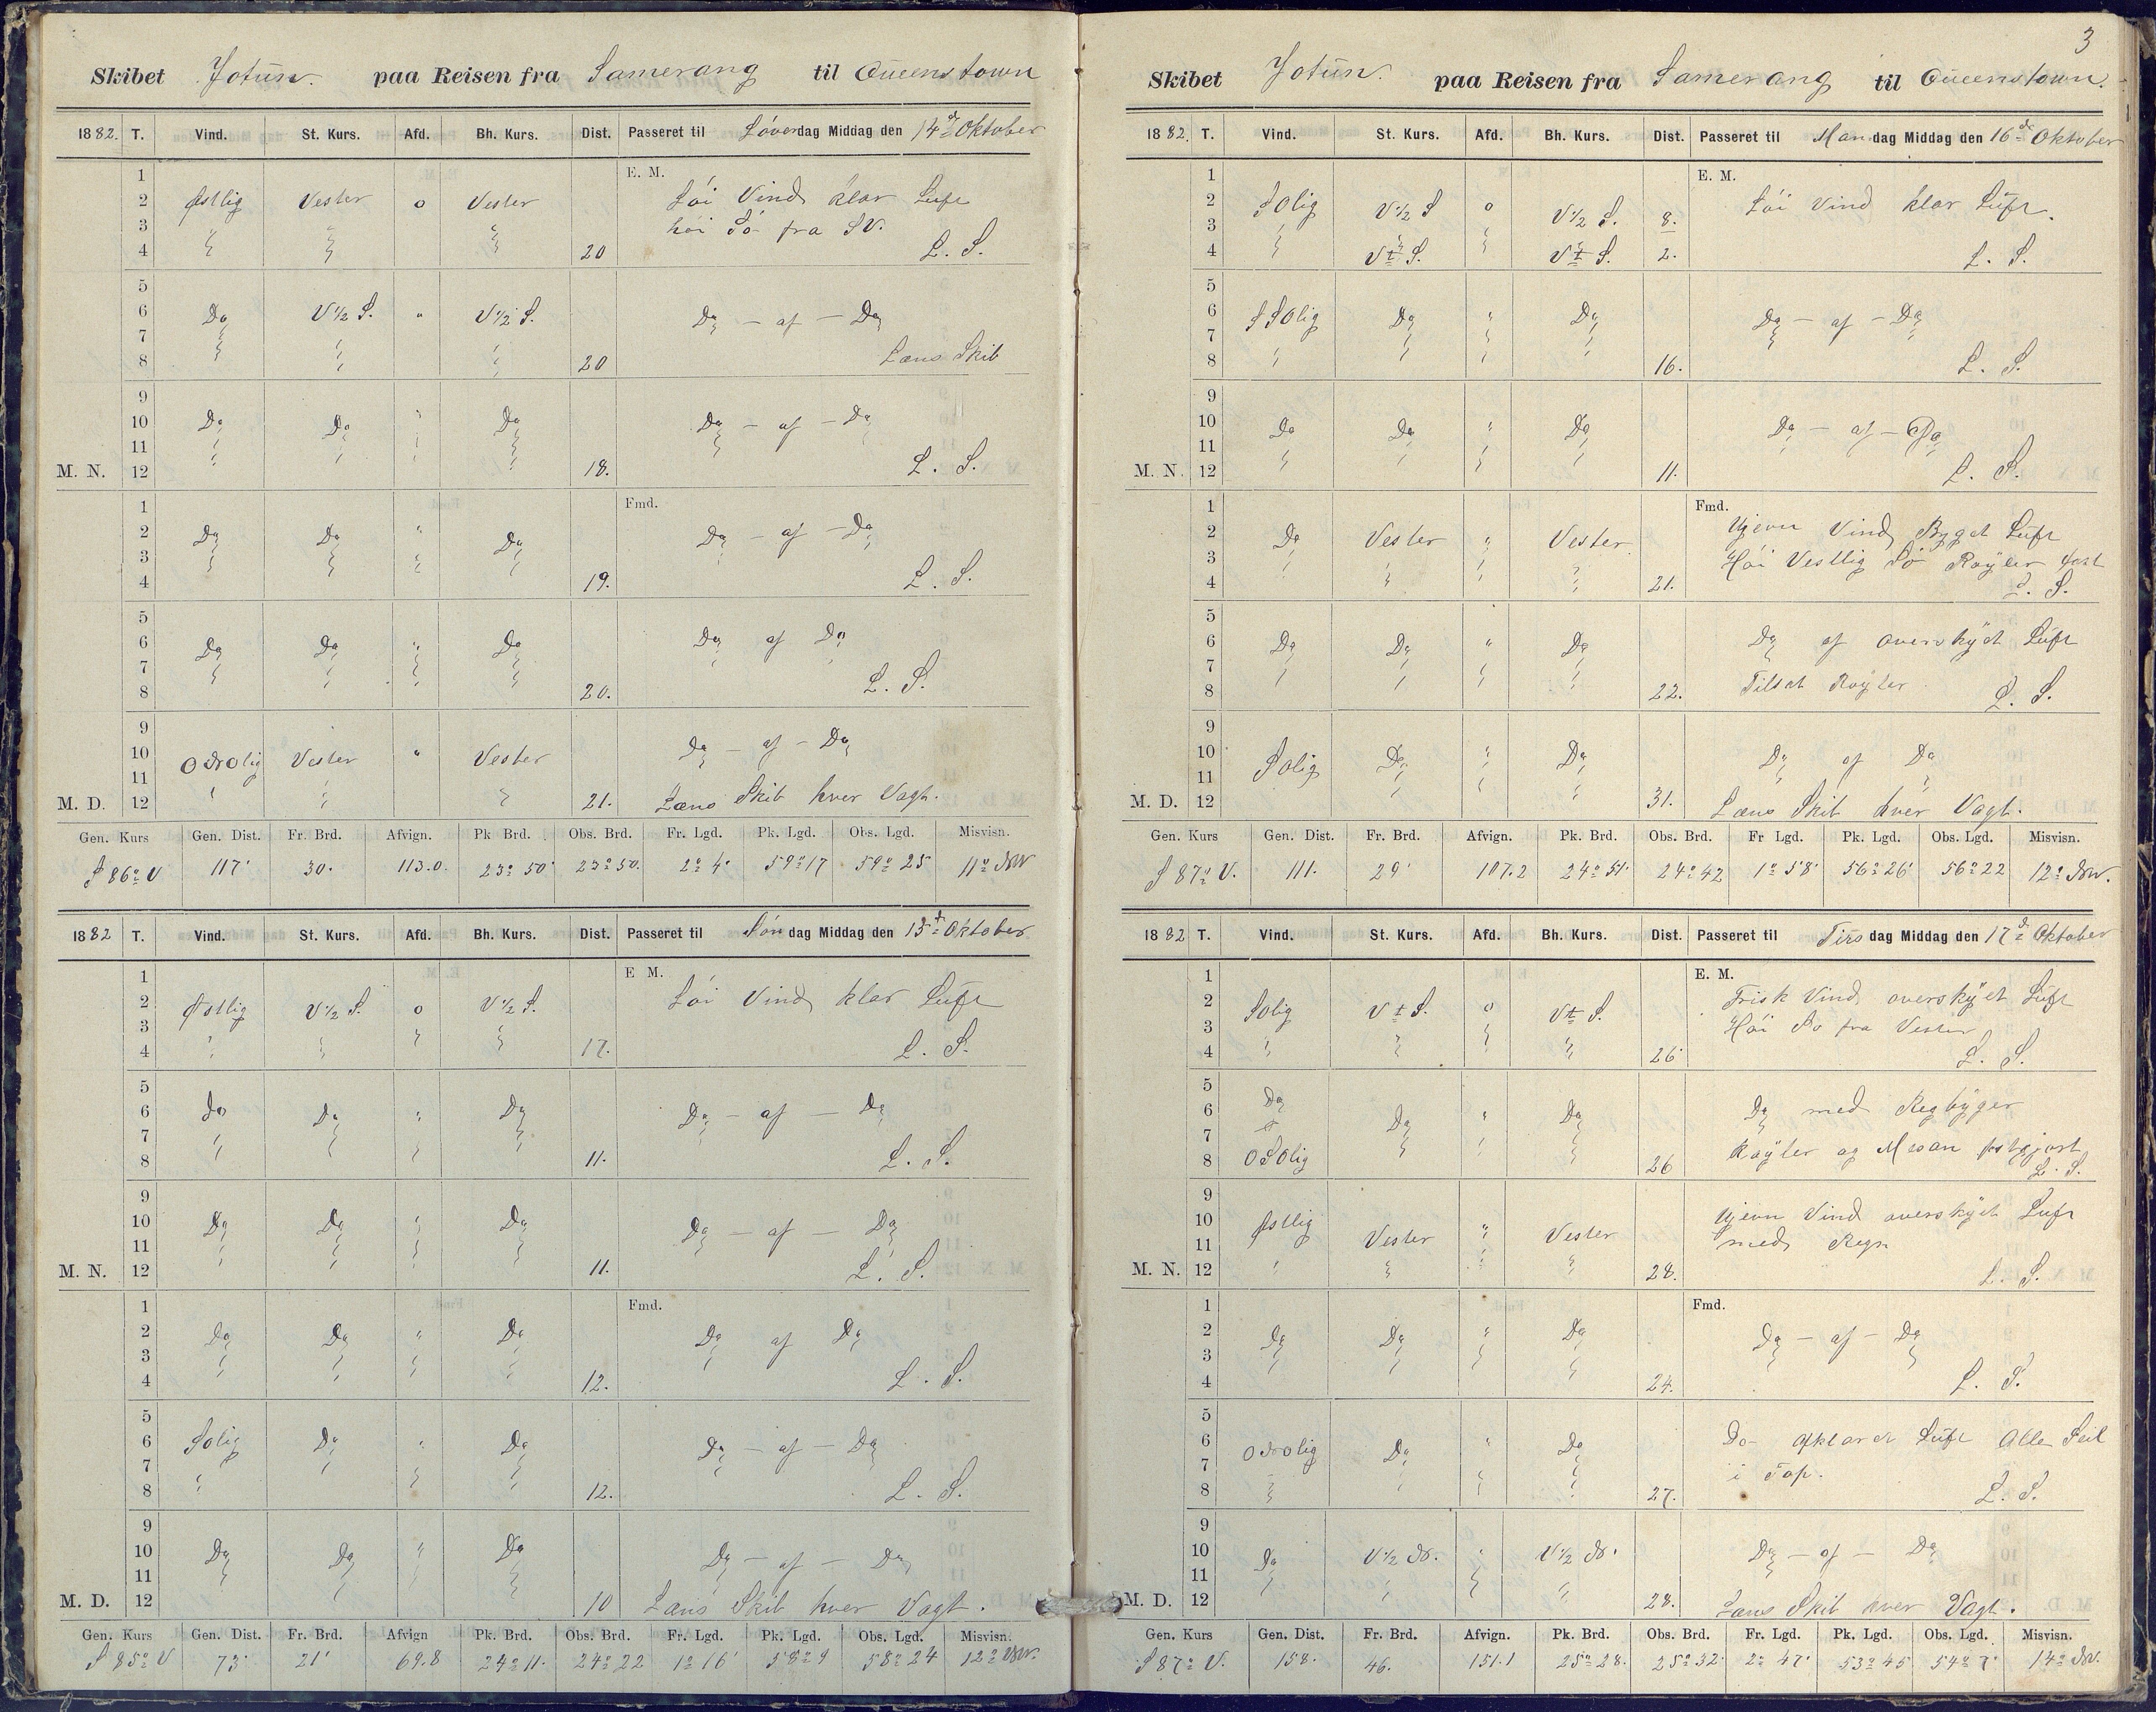 Skibet Jotün. paa Reisen fra Samerang til Queenstown
1882. T. Vind. St. Kurs. Afd. Bh. Kurs. Dist. Passeret til Löverdag Middag den 14de Oktober
1 E. M.
2 Østlig Vester o Vester Löi Vind klar Lüft
3 höi Sö fra SV.
4 20 L. S.
5
6 Do V 1/2 S. " V 1/2 S. Do - af - Do
7
8 20 Læns Skib
9
10 Do Do " Do Do - af - Do
11
M. N. 12 18. L. S.
1 Fmd.
2 Do Do " Do Do - af - Do
3
4 19. L. S.
5
6 Do Do " Do Do af Do
7
8 20. L. S.
9
10 ONOlig Vester " Vester Do - af - Do
11
M. D. 12 21. Læns Skib hver Vagt.
Gen. Kurs Gen. Dist. Fr. Brd. Afvign. Pk Brd. Obs. Brd. Fr. Lgd. Pk. Lgd. Obs. Lgd. Misvisn.
S 86° V 117' 30. 113.0. 23° 50' 23° 50. 2° 4' 59° 17 59° 25 11° NW
1882 T. Vind. St. Kurs. Afd. Bh. Kurs. Dist. Passeret til Söndag Middag den 15de Oktober
1 E M.
2 Østlig V 1/2 S. o V 1/2 S. Löi Vind klar Lüft
3
4 17. L. S.
5
6 Do Do " Do Do - af - Do
7
8 11. L. S.
9
10 Do Do " Do Do - af - Do
11
M. N. 12 11. L. S.
1 Fmd.
2 Do Do " Do Do af Do
3
4 12. L. S.
5
6 SOlig Do " Do Do - af - Do
7
8 12. L. S.
9
10 Do Do " Do Do - af - Do
11
M. D. 12 10 Læns Skib hver Vagt.
Gen. Kurs Gen. Dist. Fr. Brd. Afvign Pk. Brd. Obs. Brd. Fr. Lgd. Pk. Lgd. Obs. Lgd. Misvisn.
S 85° V 73' 21' 69.8 24° 11. 24° 22 1° 16' 58° 9 58° 24 12° NW.
3
Skibet Jotün. paa Reisen fra Samerang til Queenstown.
1882. T. Vind. St. Kurs. Afd. Bh. Kurs. Dist. Passeret til Mandag Middag den 16de Oktober
1 E. M.
2 SOlig V 1/2 S o V 1/2 S. 8. Löi Vind klar Lüft.
3
4 V t S. V t S. 2. L. S.
5
6 SSOlig Do " Do Do - af - Do
7
8 16. L. S.
9
10 Do Do " Do Do - af - Do
11
M. N. 12 11. L. S.
1 Fmd.
2 Do Vester " Vester. Ujevn Vind Byget Lüft
3 Höi Vestlig Sö Röyler fast
4 21. L. S.
5
6 Do Do " Do Do af overskÿet Lüft
7
8 22. Tilsat Röyler. L. S.
9
10 SOlig Do " Do Do af Do
11
M. D. 12 31. Læns Skib hver Vagt.
Gen. Kurs Gen. Dist. Fr. Brd. Afvign. Pk. Brd. Obs. Brd. Fr Lgd. Pk. Lgd. Obs. Lgd. Misvisn.
S 87° V. 111. 29' 107.2 24° 51. 24° 42 1° 58' 56° 26' 56° 22 12° NW.
1882 T. Vind. St. Kurs. Afd. Bh. Kurs. Dist. Passeret til Tirsdag Middag den 17de Oktober
1 E. M.
2 SOlig V t S. o V t S. Frisk Vind overskÿet Lüft
3 Höi Sö fra Vester
4 26' L. S.
5
6 Do Do " Do Do med Regbÿger
7
8 OSOlig 26 Röyler og Mesan fastgjort
L. S.
9
10 Østlig Vester " Vester Ujevn Vind overskÿet Lüft
11 med Regn
M. N. 12 28. L. S.
1 Fmd.
2 Do Do " Do Do - af - Do
3
4 24. L. S.
5
6 ONOlig Do " Do Do - Afklaret Lüft Alle Seil
7 i Top.
8 27. L. S.
9
10 Do V 1/2 N. " V 1/2 N. Do - af - Do
11
M. D. 12 28. Læns Skib hver Vagt.
Gen. Kurs Gen. Dist. Fr. Brd. Afvign. Pk. Brd. Obs. Brd. Fr. Lgd. Pk. Lgd. Obs. Lgd. Misvisn.
S 87° V. 158. 46. 151.1 25° 28. 25° 32' 2° 47' 53° 45 54° 7' 14° NW.